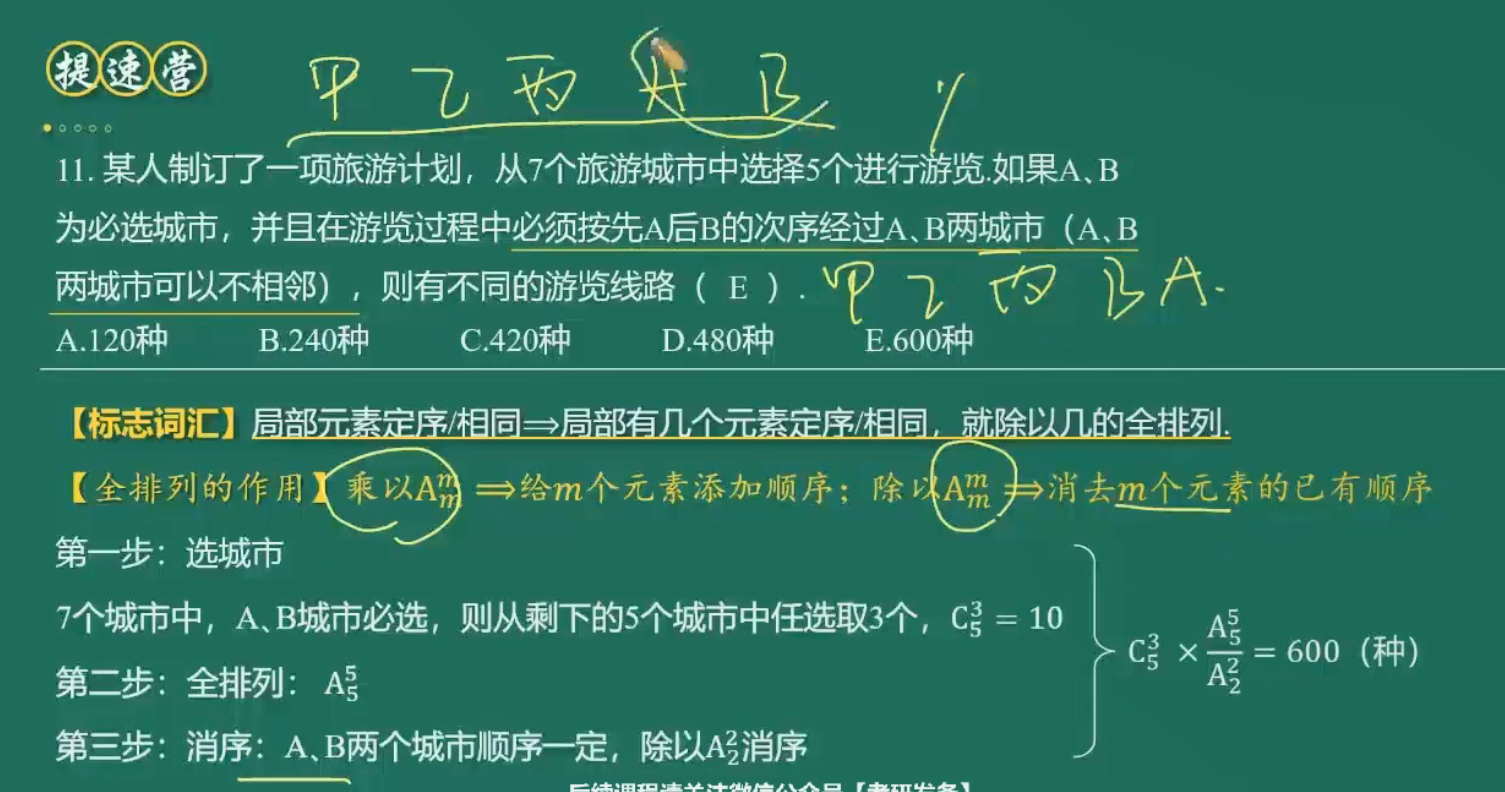 提速营
甲 乙 丙 A B
11. 某人制订了一项旅游计划，从7个旅游城市中选择5个进行游览.如果A、B
为必选城市，并且在游览过程中必须按先A后B的次序经过A、B两城市（A、B
两城市可以不相邻），则有不同的游览线路（ E ）. 甲 乙 丙 B A.
A.120种 B.240种 C.420种 D.480种 E.600种
【标志词汇】局部元素定序/相同⟹局部有几个元素定序/相同，就除以几的全排列.
【全排列的作用】乘以A_m^m ⟹给m个元素添加顺序；除以A_m^m ⟹消去m个元素的已有顺序
第一步：选城市
7个城市中，A、B城市必选，则从剩下的5个城市中任选取3个，C_5^3 = 10
C_5^3 × A_5^5/A_2^2 = 600（种）
第二步：全排列： A_5^5
第三步：消序：A、B两个城市顺序一定，除以A_2^2消序